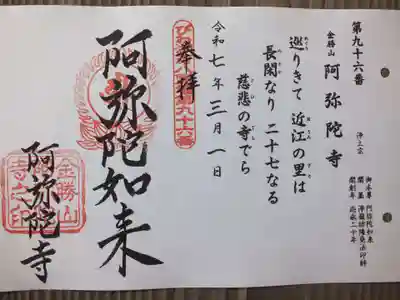 第九十六番
金勝山 阿弥陀寺
浄土宗
御本尊 阿弥陀如来
巡りきて 近江の里は
長閑なり 二十七なる
慈悲の寺でら
令和七年三月一日
奉拝
九十六番
阿弥陀如来
金勝山
寺之印
阿弥陀寺